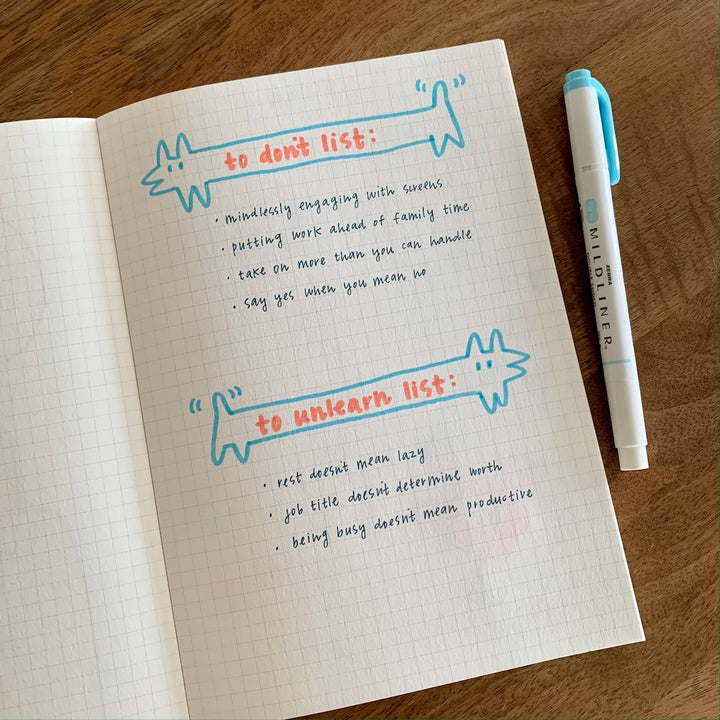 to don't list:
• mindlessly engaging with screens
• putting work ahead of family time
• take on more than you can handle
• say yes when you mean no
to unlearn list:
• rest doesn't mean lazy
• job title doesn't determine worth
• being busy doesn't mean productive
ZEBRA
MILDLINER